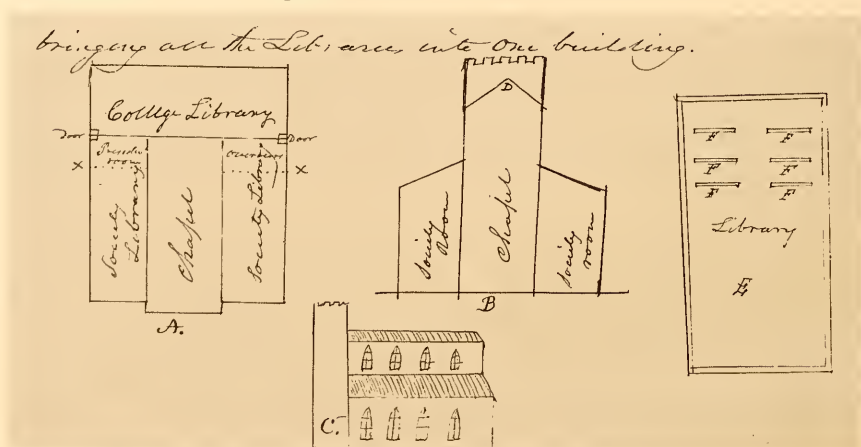 bringing all the Libraries into one building.
College Library
Door
Door
room
X
X
Society Library
Chapel
Society Library
A.
D
Society Room
Chapel
Society room
B
F F
F F
F F
Library
E
C.